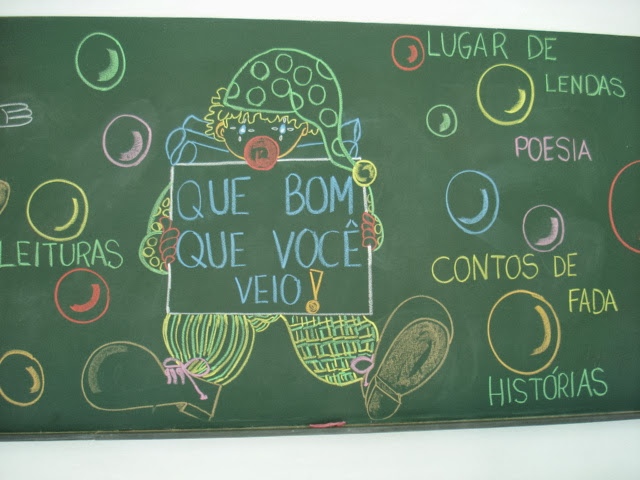 LUGAR DE
LENDAS
POESIA
QUE BOM
QUE VOCÊ
VEIO!
LEITURAS
CONTOS DE
FADA
HISTÓRIAS